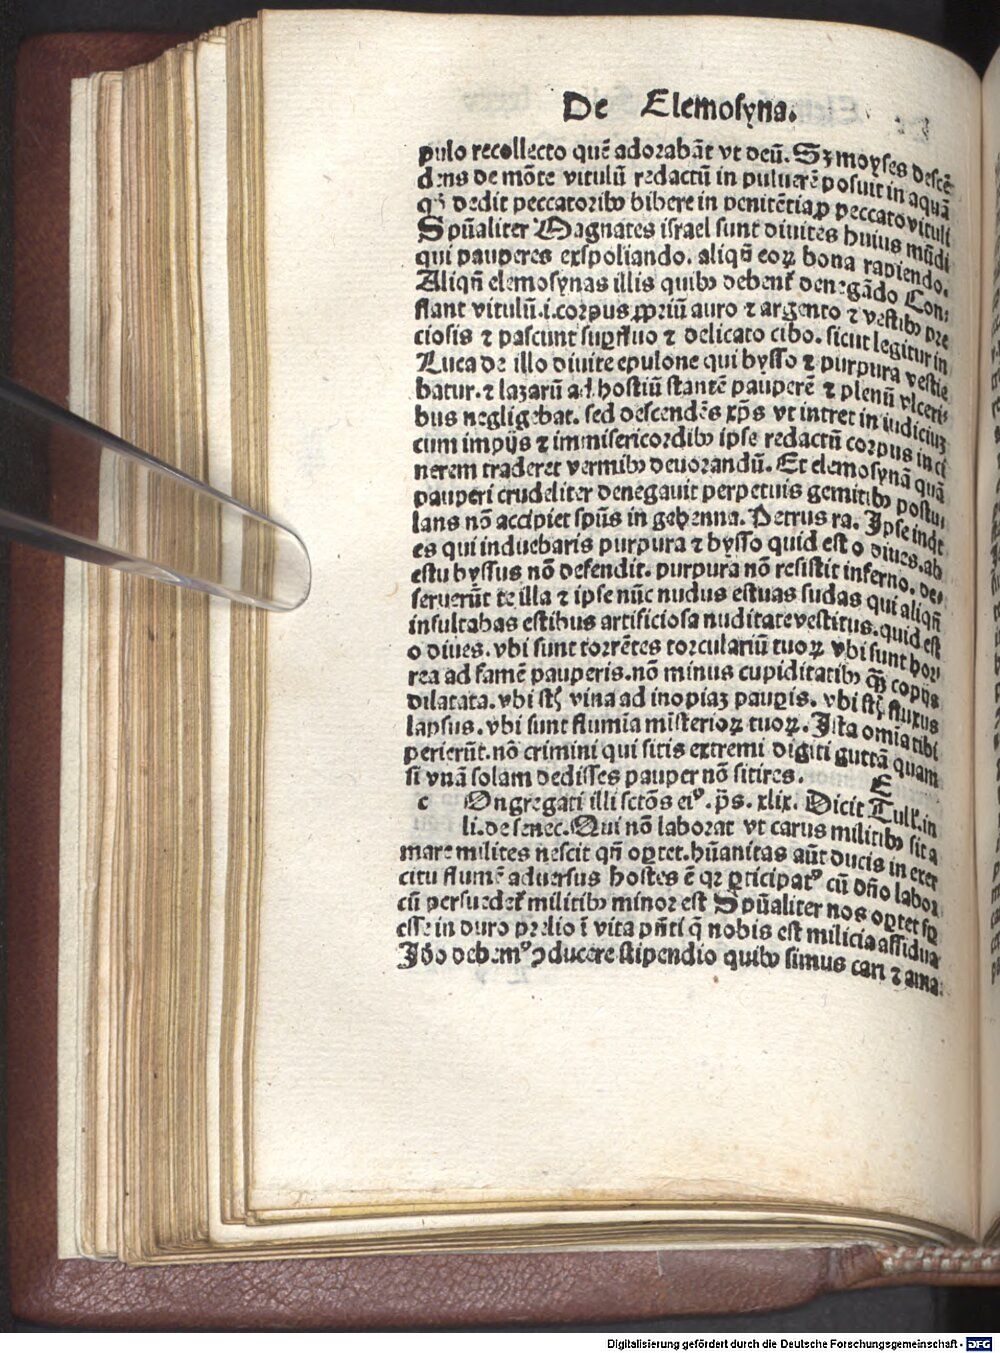 De Elemosyna.
pulo recollecto quē adorabāt vt deū. Sꝫ moyses descē
dens de mōte vitulū redactū in puluerē posuit in aquā
qꝫ dedit peccatoribꝰ bibere in penitētiā ꝓ peccato vituli
Spūaliter Magnates israel sunt diuites huius mūdi
qui pauperes exspoliando. aliqñ eoꝝ bona rapiendo.
Aliqñ elemosynas illis quibꝰ debent denegādo Con
flant vitulū .i. corpus ꝓpriū auro ⁊ argento ⁊ vestibꝰ pre
ciosis ⁊ pascunt suꝑfluo ⁊ delicato cibo. sicut legitur in
Luca de illo diuite epulone qui bysso ⁊ purpura vestie
batur. ⁊ lazarū ad hostiū stantē pauperē ⁊ plenū vlceri
bus negligebat. sed descendēs xp̄s vt intret in iudiciuꝫ
cum impijs ⁊ immisericordibꝰ ipse redactū corpus in ci
nerem traderet vermibꝰ deuorandū. Et elemosynā quā
pauperi crudeliter denegauit perpetuis gemitibꝰ postu
lans nō accipiet spūs in gehenna. Petrus ra. Ipse inqt
es qui induebaris purpura ⁊ bysso quid est o diues. ab
estu byssus nō defendit. purpura nō resistit inferno. de
seruerūt te illa ⁊ ipse nūc nudus estuas sudas qui aliqñ
insultabas estibus artificiosa nuditate vestitus. quid est
o diues. vbi sunt torrētes torculariū tuoꝝ vbi sunt hor
rea ad famē pauperis. nō minus cupiditatibꝰ qꝫ copijs
dilatata. vbi st̄ vina ad inopiaꝫ pauꝑis. vbi st̄ fluxus
lapsus. vbi sunt flumīa misterioꝝ tuoꝝ. Ista omīa tibi
perierūt. nō crimini qui sitis extremi digiti guttā quam
si vnā solam dedisses pauper nō sitires. E
c Ongregati illi sctōs eiꝰ. ps̄. xlix. Dicit Tull. in
li. de senec. Qui nō laborat vt carus militibꝰ sit a
mare milites nescit qñ oꝑtet. hūanitas aūt ducis in exer
citu flumē aduersus hostes ē qꝛ ꝑticipatꝰ cū dño labor
cū persuadet militibꝰ minor est Spūaliter nos oꝑtet sꝑ
esse in duro prelio ī vita pñti q̄ nobis est milicia assidua
Iō debemꝰ ꝯducere stipendio quibꝰ simus cari ⁊ ama
Digitalisierung gefördert durch die Deutsche Forschungsgemeinschaft - DFG